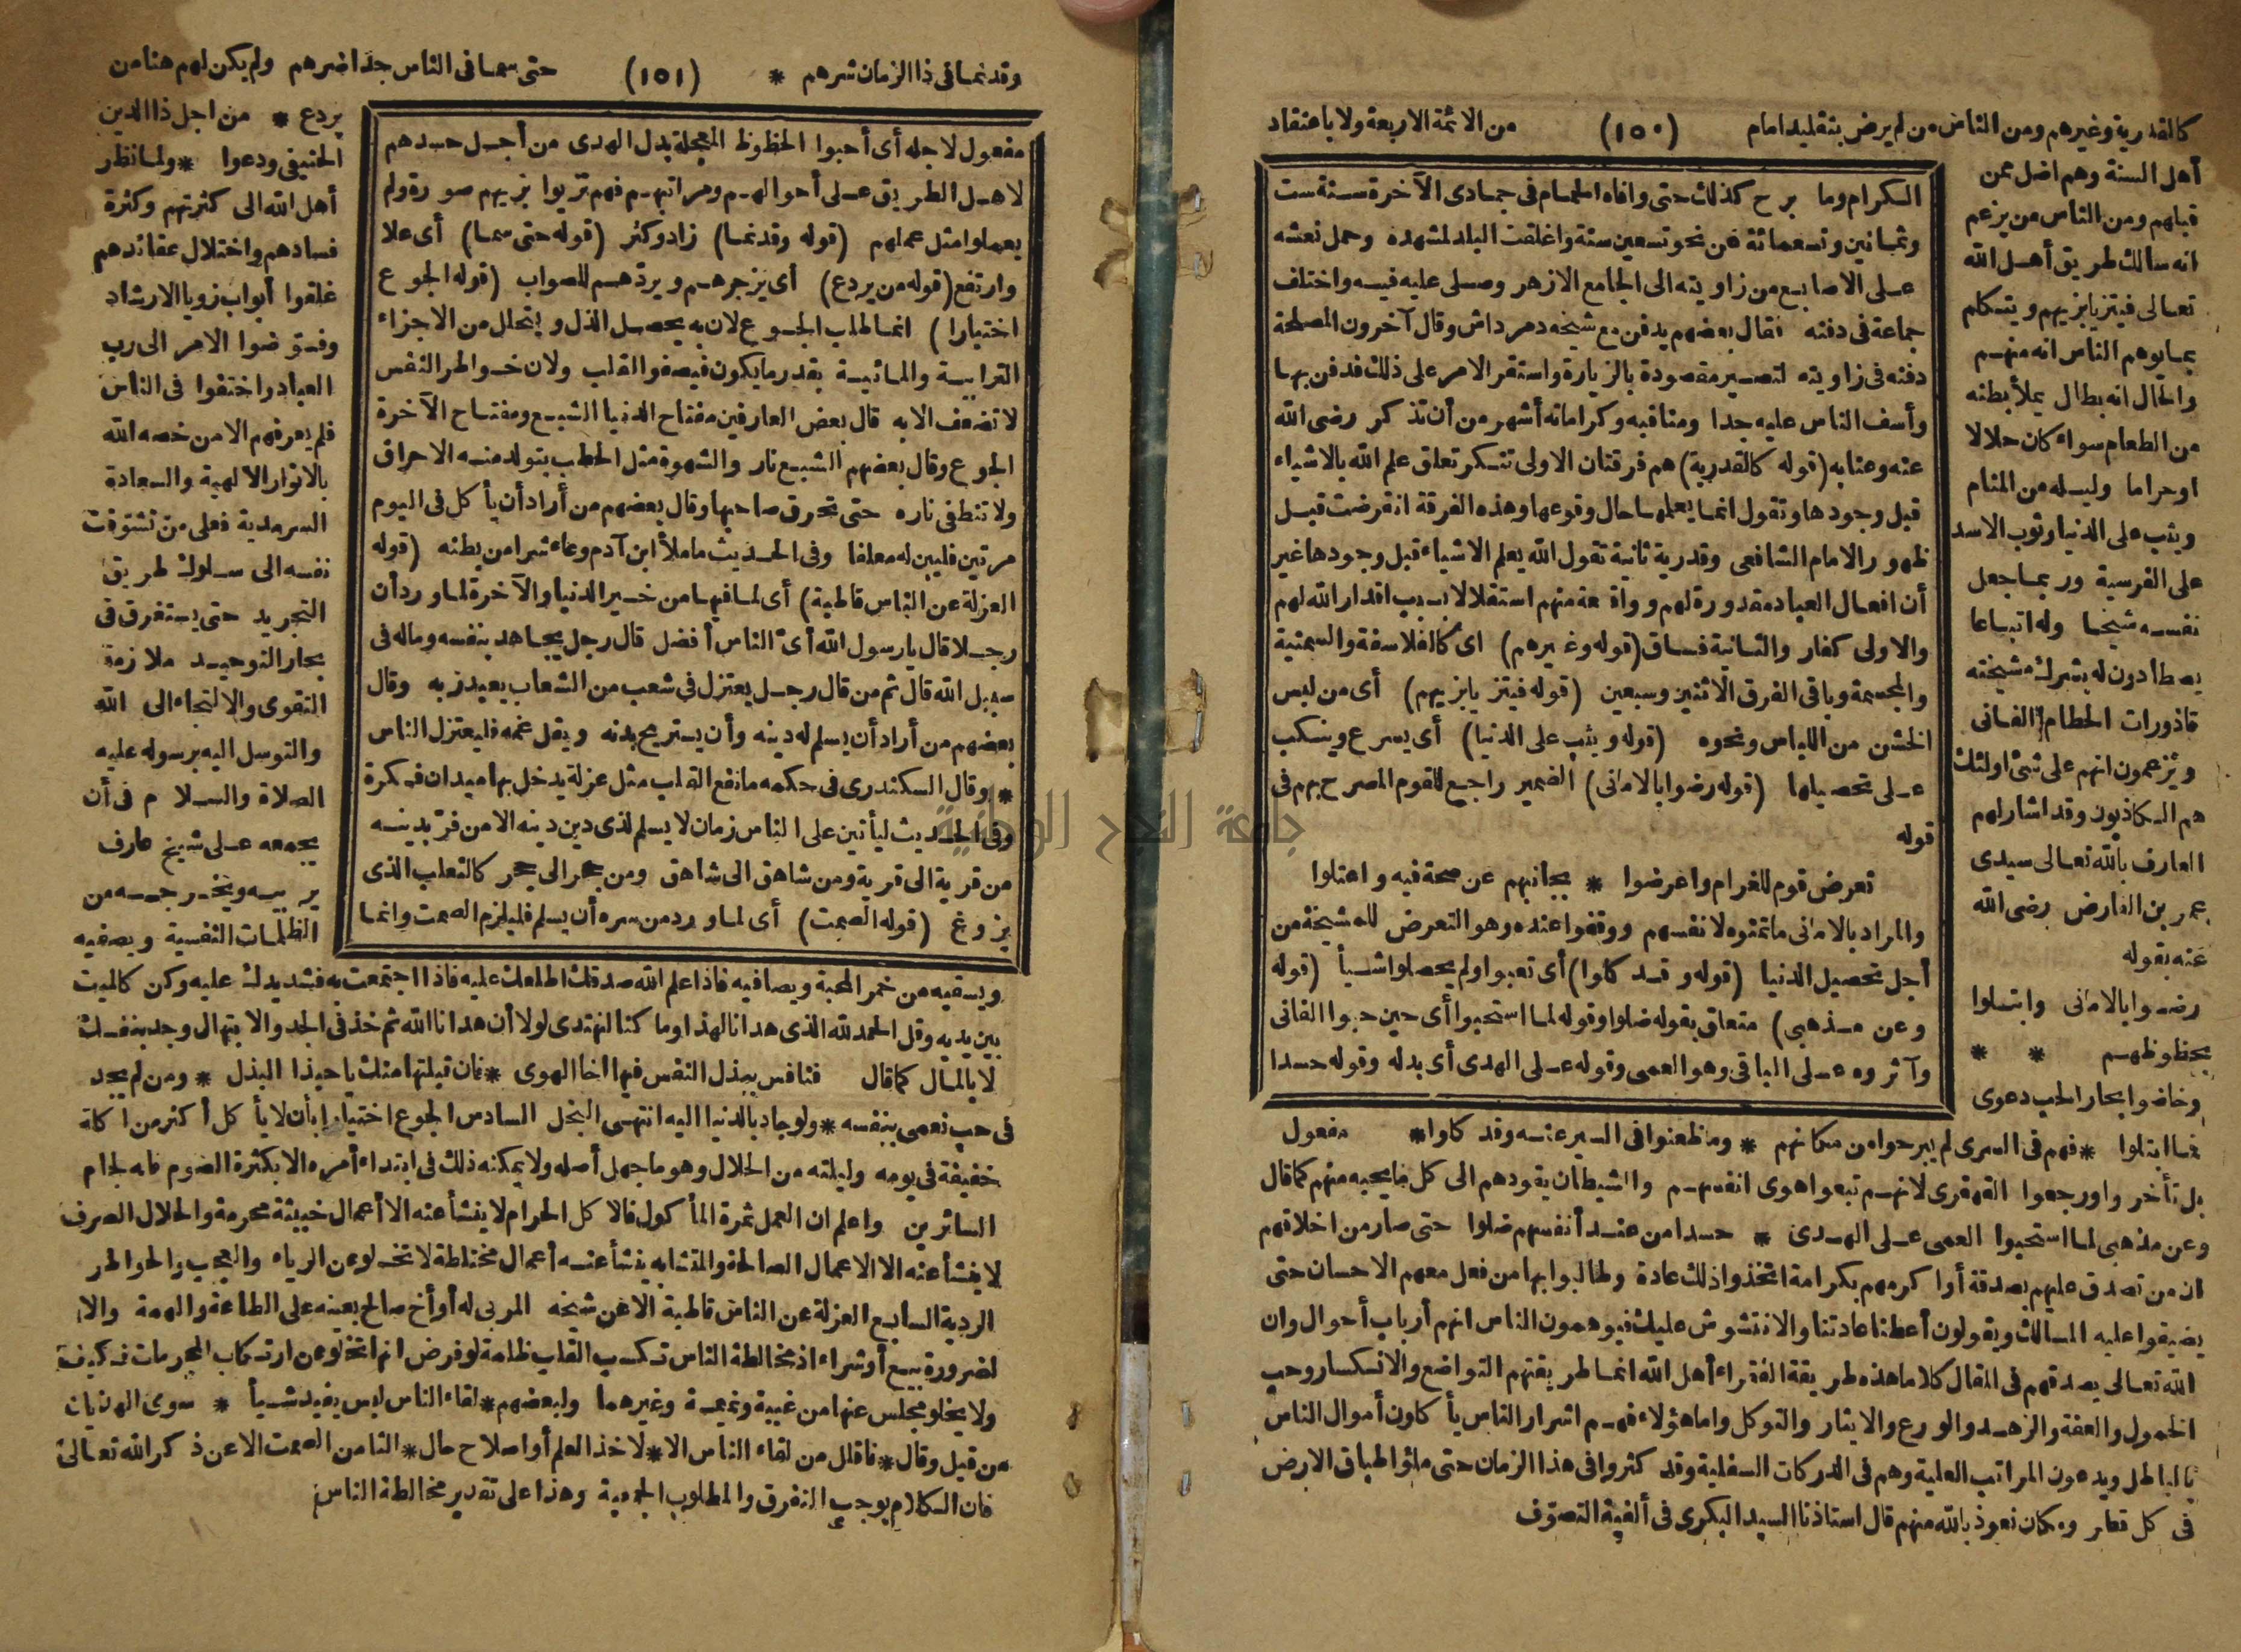 كالقدرية وغيرهم ومن الناس من لم يرض بتقليد امام (١٥٠) من الائمة الاربعة ولا باعتقاد
أهل السنة وهم اضل ممن
قبلهم ومن الناس من يزعم
انه سالك طريق أهل الله
تعالى فيتزيا بزيهم ويتكلم
بما يوهم الناس انه منهم
والحال انه بطال يملأ بطنه
من الطعام سواء كان حلالا
او حراما وليله من المنام
ويثب على الدنيا وثوب الاسد
على الفرسية وربما جعل
نفسه شيخا وله اتباعا
يصطادون له بشرك مشيخته
قاذورات الحطام الفانى
ويزعمون انهم على شئ اولئك
هم الكاذبون وقد اشار لهم
العارف بالله تعالى سيدى
عمر بن الفارض رضى الله
عنه بقوله
رضوا بالامانى وابتلوا
بحظوظهم * *
وخاضوا بحار الحب دعوى
فما ابتلوا * فهم فى السرى لم يبرحوا من مكانهم * وما ظعنوا فى السير عنه وقد كلوا *
بل تأخروا ورجعوا القهقرى لانهم تبعوا هوى انفسهم والشيطان يقودهم الى كل ما يحبه منهم كما قال
وعن مذهبى لما استحبوا العمى على الهدى * حسدا من عند أنفسهم ضلوا حتى صار من اخلاقهم
ان من تصدق عليهم بصدقة أوا كرمهم بكرامة اتخذوا ذلك عادة وطالبوا بها من فعل معهم الاحسان حتى
يضيقوا عليه المسالك ويقولون أعطنا عادتنا والا نتشوش عليك فيوهمون الناس انهم أرباب أحوال وان
الله تعالى يصدقهم فى المقال كلا ما هذه طريقة الفقراء أهل الله انما طريقتهم التواضع والانكسار وحب
الخمول والعفة والزهد والورع والايثار والتوكل واما هؤلاء فهم اشرار الناس يأكلون أموال الناس
بالباطل ويدعون المراتب العلية وهم فى الدركات السفلية وقد كثروا فى هذا الزمان حتى ملؤا طباق الارض
فى كل قطر ومكان نعوذ بالله منهم قال استاذنا السيد البكرى فى ألفية التصوف
الكرام وما برح كذلك حتى وافاه الحمام فى جمادى الآخرة سنة ست
وثمانين وتسعمائة عن نحو تسعين سنة واغلقت البلد لمشهده وحمل نعشه
على الاصابع من زاويته الى الجامع الازهر وصلى عليه فيه واختلف
جماعة فى دفنه فقال بعضهم يدفن مع شيخه دمرداش وقال آخرون المصلحة
دفنه فى زاويته لتصير مقصودة بالزيارة واستقر الامر على ذلك فدفن بها
وأسف الناس عليه جدا ومناقبه وكراماته أشهر من أن تذكر رضى الله
عنه وعنا به (قوله كالقدرية) هم فرقتان الاولى تنكر تعلق علم الله بالاشياء
قبل وجودها وتقول انما يعلمها حال وقوعها وهذه الفرقة انقرضت قبل
ظهور الامام الشافعى وقدرية ثانية تقول الله يعلم الاشياء قبل وجودها غير
أن افعال العباد مقدورة لهم وواقعة منهم استقلالا بسبب اقدار الله لهم
والاولى كفار والثانية فساق (قوله وغيرهم) اى كالفلاسفة والسمنية
والمجسمة وباقى الفرق الاثنين وسبعين (قوله فيتزيا بزيهم) أى من لبس
الخشن من اللباس ونحوه (قوله ويثب على الدنيا) أى يسرع وينكب
على تحصيلها (قوله رضوا بالامانى) الضمير راجع للقوم المصرح بهم فى
قوله
تعرض قوم للغرام واعرضوا * بجانبهم عن صحة فيه واعتلوا
والمراد بالامانى ما تمنوه لانفسهم ووقفوا عنده وهو التعرض للمشيخة من
أجل تحصيل الدنيا (قوله وقد كلوا) أى تعبوا ولم يحصلوا شيأ (قوله
وعن مذهبى) متعلق بقوله ضلوا وقوله لما استحبوا أى حين حبوا الفانى
وآثروه على الباقى وهو العمى وقوله على الهدى أى بدله وقوله حسدا
مفعول
وقد نما فى ذا الزمان شرهم * (١٥١) حتى سما فى الناس جدا ضرهم ولم يكن لهم هنا من
يردع * من اجل ذا الدين
الحنيفى ودعوا * ولما نظر
أهل الله الى كثرتهم وكثرة
فسادهم واختلال عقائدهم
غلقوا أبواب زوايا الارشاد
وفوضوا الامر الى رب
العباد واختفوا فى الناس
فلم يعرفهم الا من خصه الله
بالانوار الالهية والسعادة
السرمدية فعلى من تشوقت
نفسه الى سلوك طريق
التجريد حتى يستغرق فى
بحار التوحيد ملازمة
التقوى والالتجاء الى الله
والتوسل اليه برسوله عليه
الصلاة والسلام فى أن
يجمعه على شيخ عارف
يربيه ويخرجه من
الظلمات النفسية ويصفيه
ويسقيه من خمر المحبة ويصافيه فاذا علم الله صدقك اطلعك عليه فاذا اجتمعت به فشد يدك عليه وكن كالميت
بين يديه وقل الحمد لله الذى هدانا لهذا وما كنا لنهتدى لولا أن هدانا الله ثم خذ فى الجد والابتهال وجد بنفسك
لا بالمال كما قال فنافس ببذل النفس فيها اخا الهوى * فان قبلتها منك يا حبذا البذل * ومن لم يجد
فى حب نعمى بنفسه * ولو جاد بالدنيا اليه انتهى البخل السادس الجوع اختيارا بأن لا يأكل أكثر من اكلة
خفيفة فى يومه وليلته من الحلال وهو ما جهل أصله ولا يمكنه ذلك فى ابتداء أمره الا بكثرة الصوم فانه لجام
السائرين واعلم ان العمل ثمرة المأكول فالا كل الحرام لا ينشأ عنه الا أعمال خبيثة محرمة والحلال الصرف
لا ينشأ عنه الا الاعمال الصالحة والمتشابه ينشأ عنه أعمال مختلطة لا تخلو عن الرياء والعجب والخواطر
الردية السابع العزلة عن الناس قاطبة الا عن شيخه المربى له أو أخ صالح يعينه على الطاعة والهمة والا
لضرورة بيع أو شراء اذ مخالطة الناس تكسب القلب ظلمة لو فرض انها تخلو عن ارتكاب المحرمات فكيف
ولا يخلو مجلس عنها من غيبة ونميمة وغيرهما ولبعضهم * لقاء الناس ليس يفيد شيأ * سوى الهذيان
من قيل وقال * فاقلل من لقاء الناس الا * لاخذ العلم أو اصلاح حال * الثامن الصمت الا عن ذكر الله تعالى
فان الكلام يوجب التفرق والمطلوب الجمعية وهذا على تقدير مخالطة الناس
مفعول لاجله أى أحبوا الحظوظ المعجلة بدل الهدى من أجل حسدهم
لاهل الطريق على أحوالهم ومراتبهم فهم تزيوا بزيهم صورة ولم
يعملوا مثل عملهم (قوله وقد نما) زاد وكثر (قوله حتى سما) أى علا
وارتفع (قوله من يردع) أى يزجرهم ويردهم للصواب (قوله الجوع
اختيارا) انما طلب الجوع لان به يحصل الذل ويتحلل من الاجزاء
الترابية والمائية بقدر ما يكون فيصفو القلب ولان خواطر النفس
لا تضعف الا به قال بعض العارفين مفتاح الدنيا الشبع ومفتاح الآخرة
الجوع وقال بعضهم الشبع نار والشهوة مثل الحطب يتولد منه الاحراق
ولا تنطفى ناره حتى تحرق صاحبها وقال بعضهم من أراد أن يأكل فى اليوم
مرتين فليبن له معلفا وفى الحديث ما ملأ ابن آدم وعاء شرا من بطنه (قوله
العزلة عن الناس قاطبة) أى لما فيها من خير الدنيا والآخرة لما ورد أن
رجلا قال يا رسول الله أى الناس أفضل قال رجل يجاهد بنفسه وماله فى
سبيل الله قال ثم من قال رجل يعتزل فى شعب من الشعاب يعبد ربه وقال
بعضهم من أراد أن يسلم له دينه وأن يستريح بدنه ويقل غمه فليعتزل الناس
* وقال السكندرى فى حكمه ما نفع القلب مثل عزلة يدخل بها ميدان فكرة
وفى الحديث ليأتين على الناس زمان لا يسلم لذى دين دينه الا من فر بدينه
من قرية الى قرية ومن شاهق الى شاهق ومن جحر الى جحر كالثعلب الذى
يزوغ (قوله الصمت) أى لما ورد من سره أن يسلم فليلزم الصمت وانما
جامعة النجاح الوطنية